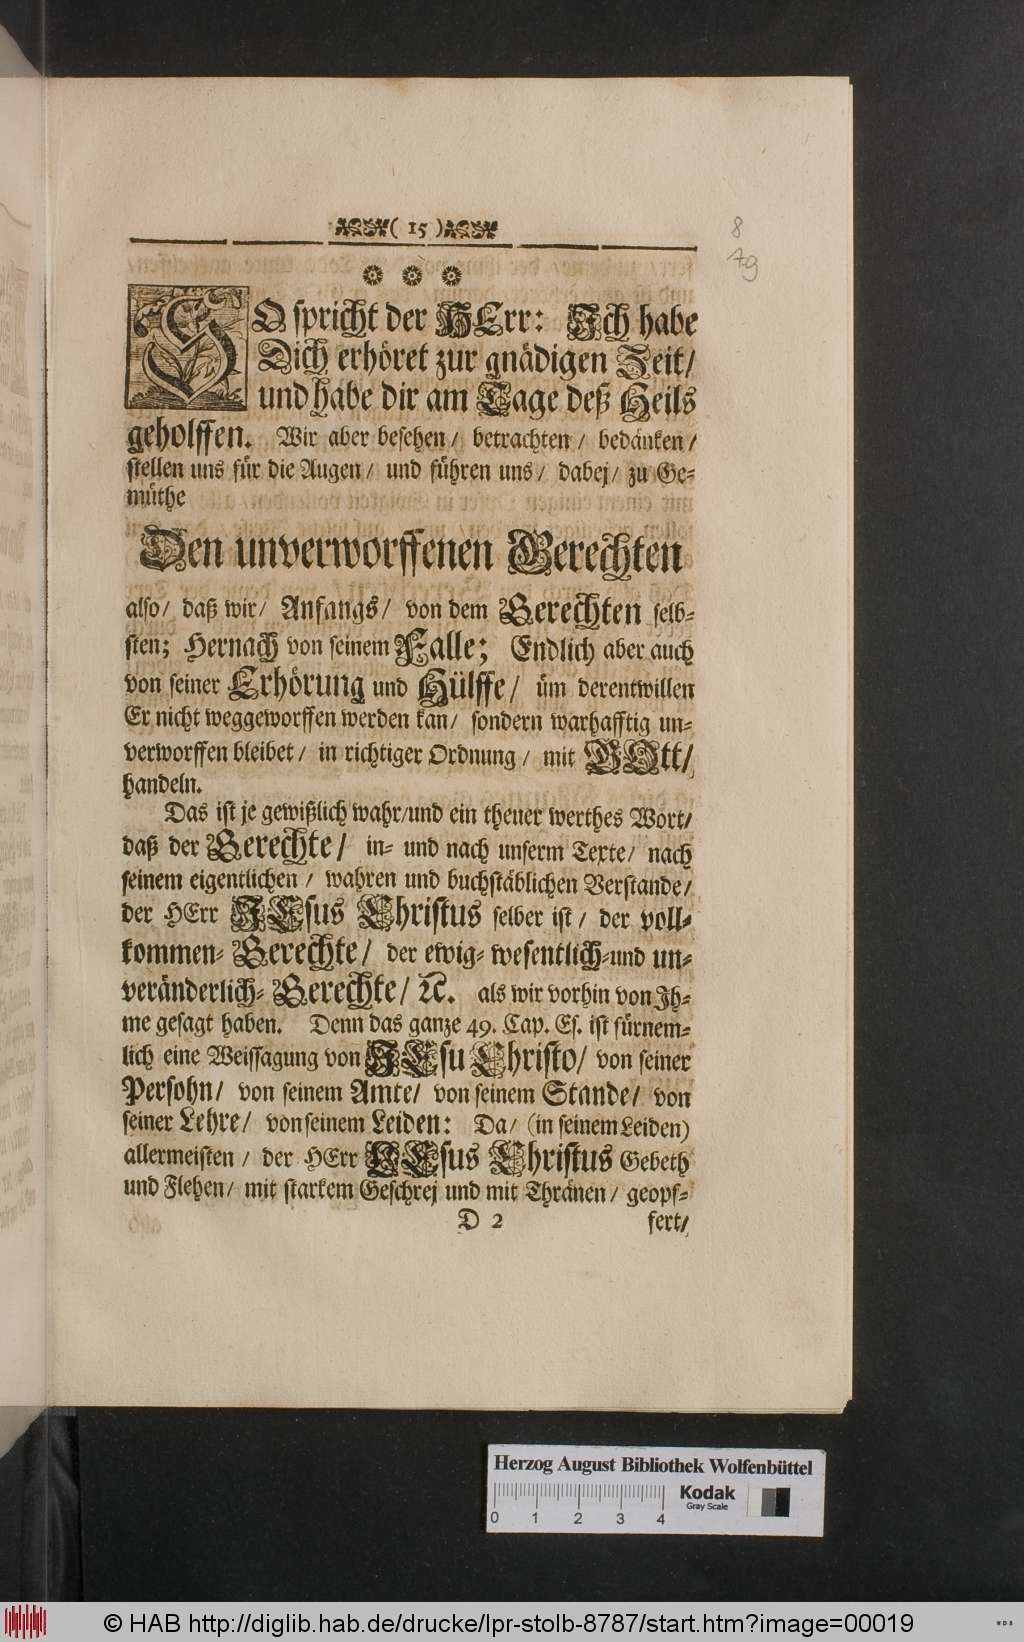 ( 15 )
8
79
SO spricht der HErr: Ich habe
Dich erhöret zur gnädigen Zeit/
und habe dir am Tage deß Heils
geholffen. Wir aber besehen/ betrachten/ bedänken/
stellen uns für die Augen/ und führen uns/ dabej/ zu Ge-
müthe
Den unverworffenen Gerechten
also/ daß wir/ Anfangs/ von dem Gerechten selb-
sten; Hernach von seinem Falle; Endlich aber auch
von seiner Erhörung und Hülffe/ üm derentwillen
Er nicht weggeworffen werden kan/ sondern warhafftig un-
verworffen bleibet/ in richtiger Ordnung/ mit GOtt/
handeln.
Das ist je gewißlich wahr/und ein theuer werthes Wort/
daß der Gerechte/ in- und nach unserm Texte/ nach
seinem eigentlichen/ wahren und buchstäblichen Verstande/
der HErr JEsus Christus selber ist/ der voll-
kommen- Gerechte/ der ewig- wesentlich-und un-
veränderlich- Gerechte/ ꝛc. als wir vorhin von Jh-
me gesagt haben. Denn das ganze 49. Cap. Es. ist fürnem-
lich eine Weissagung von JEsu Christo/ von seiner
Persohn/ von seinem Amte/ von seinem Stande/ von
seiner Lehre/ von seinem Leiden: Da/ (in seinem Leiden)
allermeisten/ der HErr JEsus Christus Gebeth
und Flehen/ mit starkem Geschrej und mit Thränen/ geopf-
D 2 fert/
Herzog August Bibliothek Wolfenbüttel
Kodak
Gray Scale
0 1 2 3 4
© HAB http://diglib.hab.de/drucke/lpr-stolb-8787/start.htm?image=00019